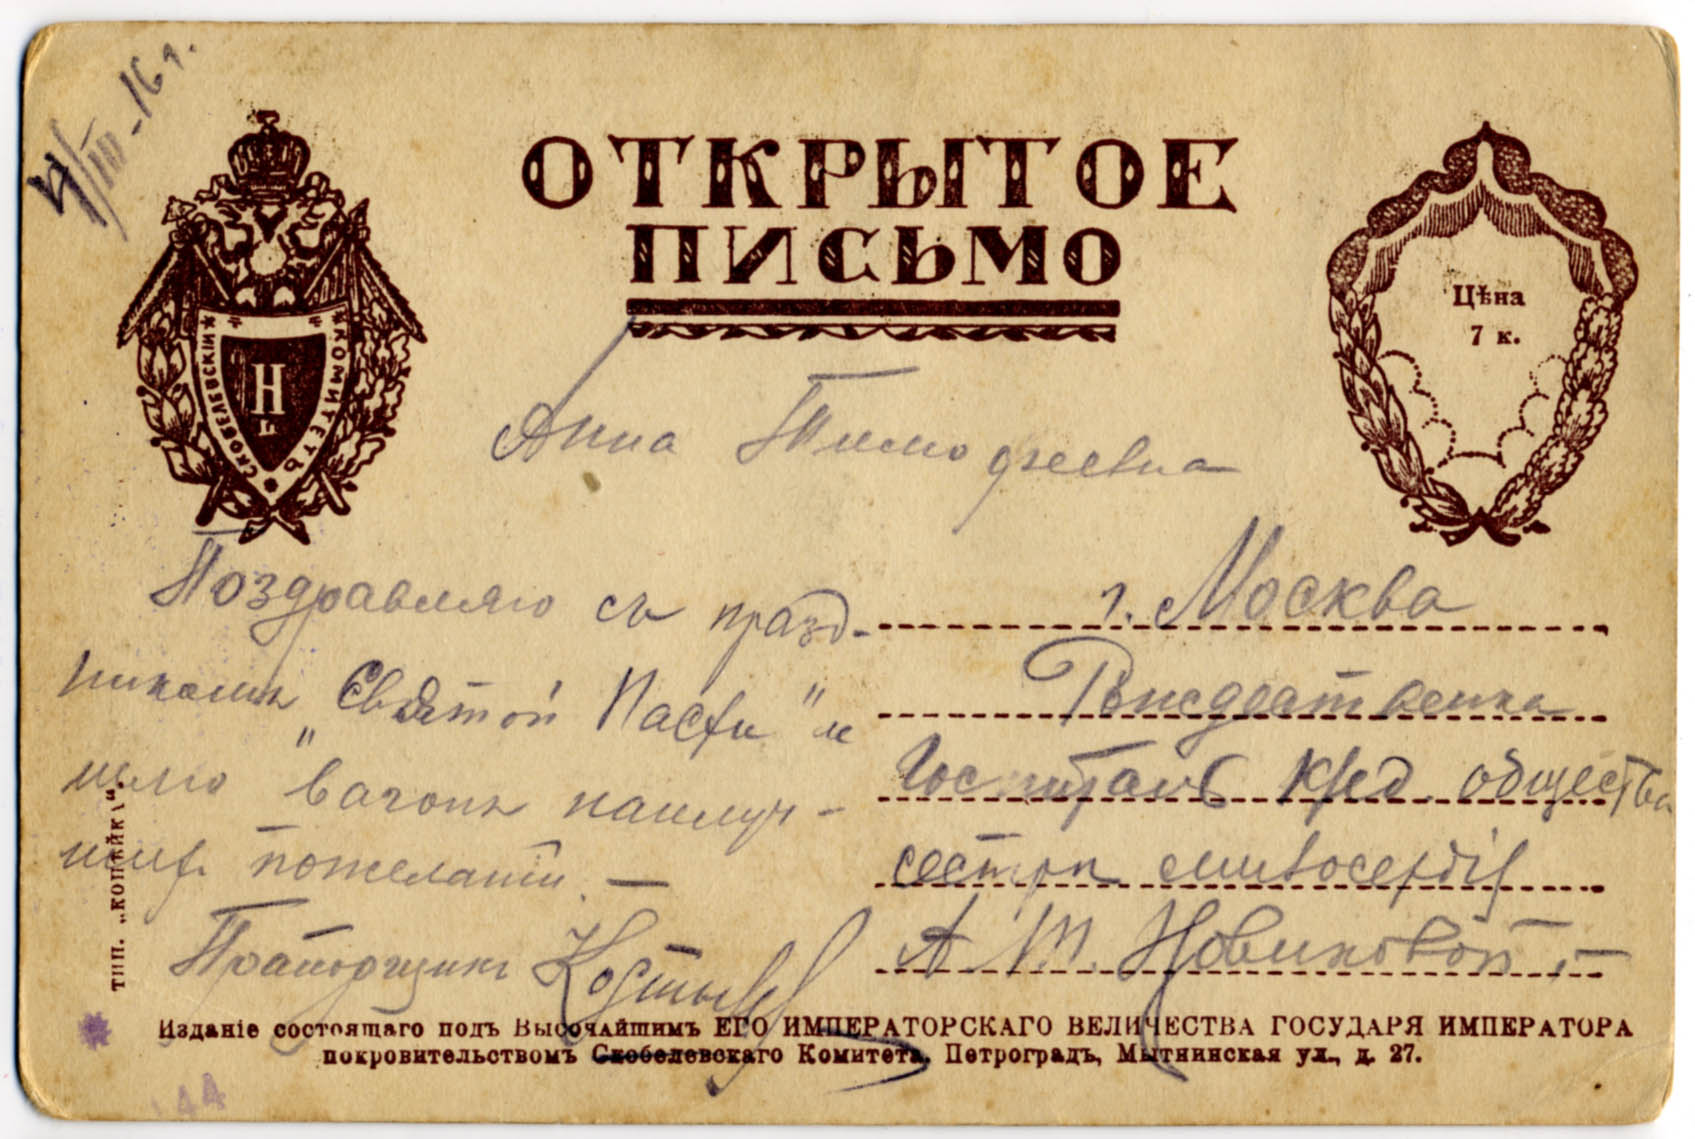 4/III-16 г.
ОТКРЫТОЕ
ПИСЬМО
СКОБЕЛЕВСКІЙ КОМИТЕТЪ
Н
II
Цѣна
7 к.
Анна Тимофеевна
Поздравляю съ празд-
никомъ „Святой Пасхи" и
шлю Вамъ наилуч-
ших пожеланій. —
Прапорщикъ
г. Москва
Рождественка
Госпиталь Кред. общества
сестрѣ милосердія
А. Т. Новиковой. —
ТИП. „КОПѢЙКА".
Изданіе состоящаго подъ Высочайшимъ ЕГО ИМПЕРАТОРСКАГО ВЕЛИЧЕСТВА ГОСУДАРЯ ИМПЕРАТОРА
покровительствомъ Скобелевскаго Комитета. Петроградъ, Мытнинская ул., д. 27.
144